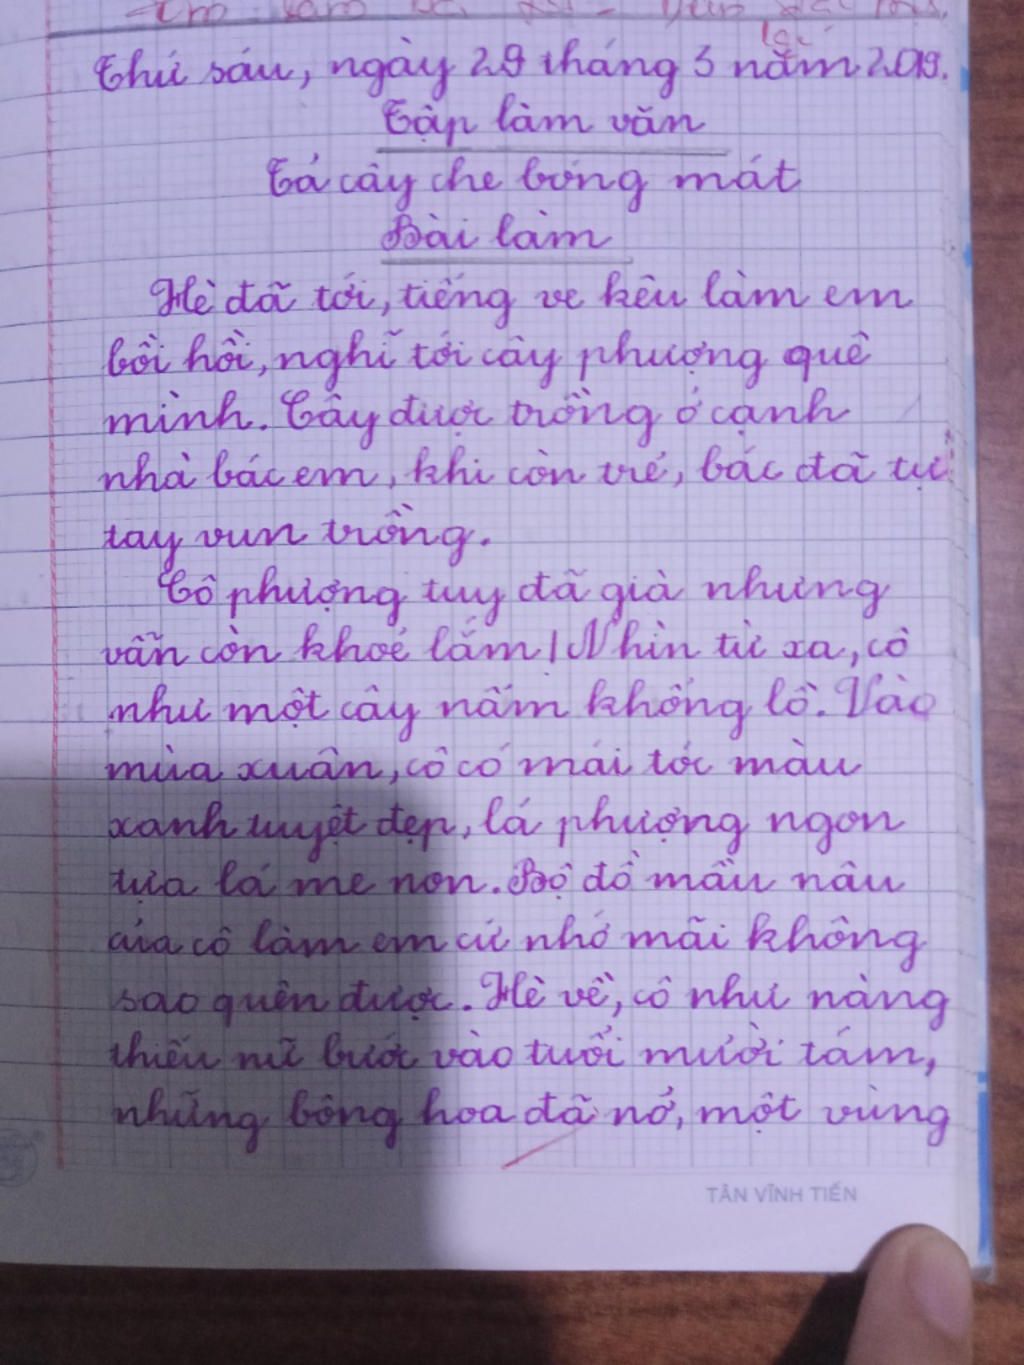 Em làm bài
lại
Thứ sáu, ngày 29 tháng 3 năm 2019.
Tập làm văn
Tả cây che bóng mát
Bài làm
Hè đã tới, tiếng ve kêu làm em
bồi hồi, nghĩ tới cây phượng quê
mình. Cây được trồng ở cạnh
nhà bác em, khi còn trẻ, bác đã tự
tay vun trồng.
Cô phượng tuy đã già nhưng
vẫn còn khoẻ lắm! Nhìn từ xa, cô
như một cây nấm khổng lồ. Vào
mùa xuân, cô có mái tóc màu
xanh tuyệt đẹp, lá phượng ngon
tựa lá me non. Bộ đồ mầu nâu
của cô làm em cứ nhớ mãi không
sao quên được. Hè về, cô như nàng
thiếu nữ bước vào tuổi mười tám,
những bông hoa đã nở, một vùng
TÂN VĨNH TIẾN